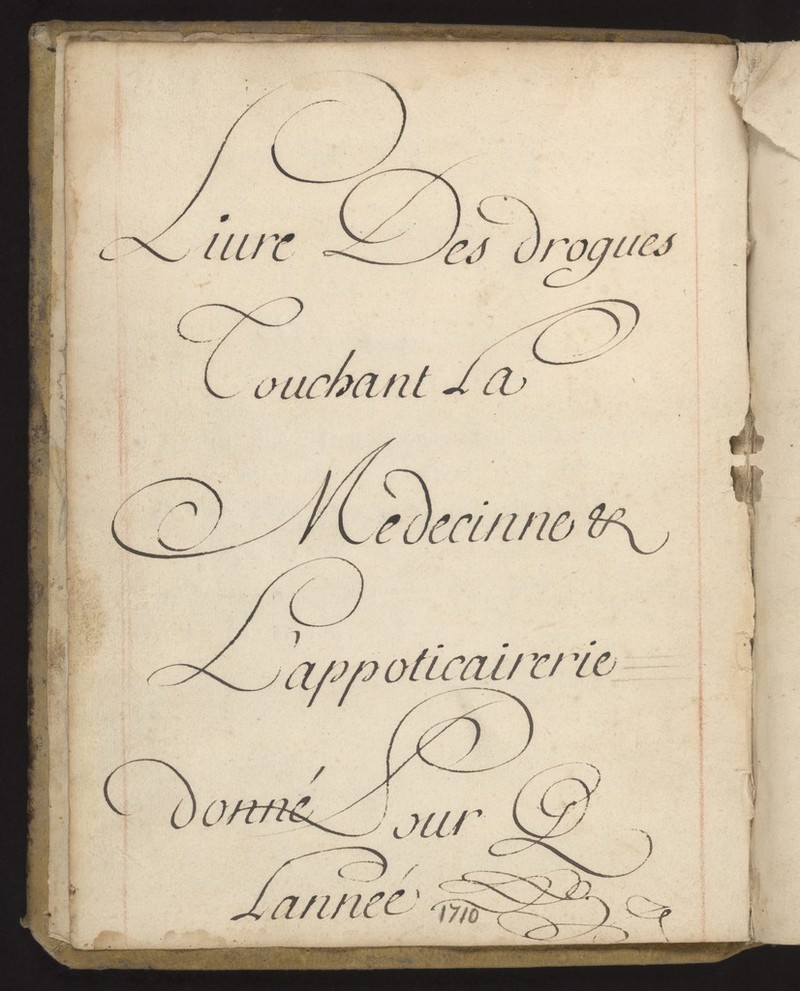 Liure Des drogues
Touchant La
Medecinne &
L'appoticairerie
donné Pour
Lanneé 1710